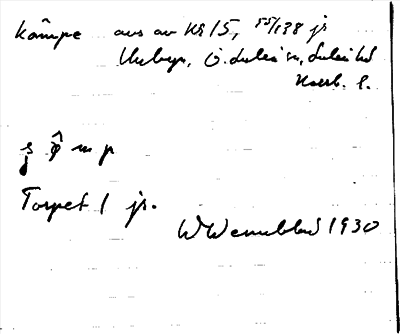 Kâmpe aus av Kr 15, 55/138 jr
Unbyn, Ö. Luleå sn, Luleå hd
Norrb. l.
Torpet 1 jr.
W Wennblad 1930